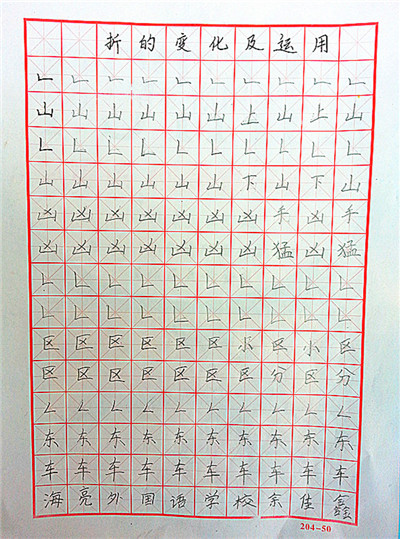 折的变化及运用
山山山山山山上山上山
山山山山山山下山下山
凶凶凶凶凶凶凶手凶手
凶凶凶凶凶凶凶猛凶猛
区区区区区区小区小区
区区区区区区区分区分
东东东东东东东东东东
车车车车车车车车车车
海亮外国语学校余佳鑫
204-50